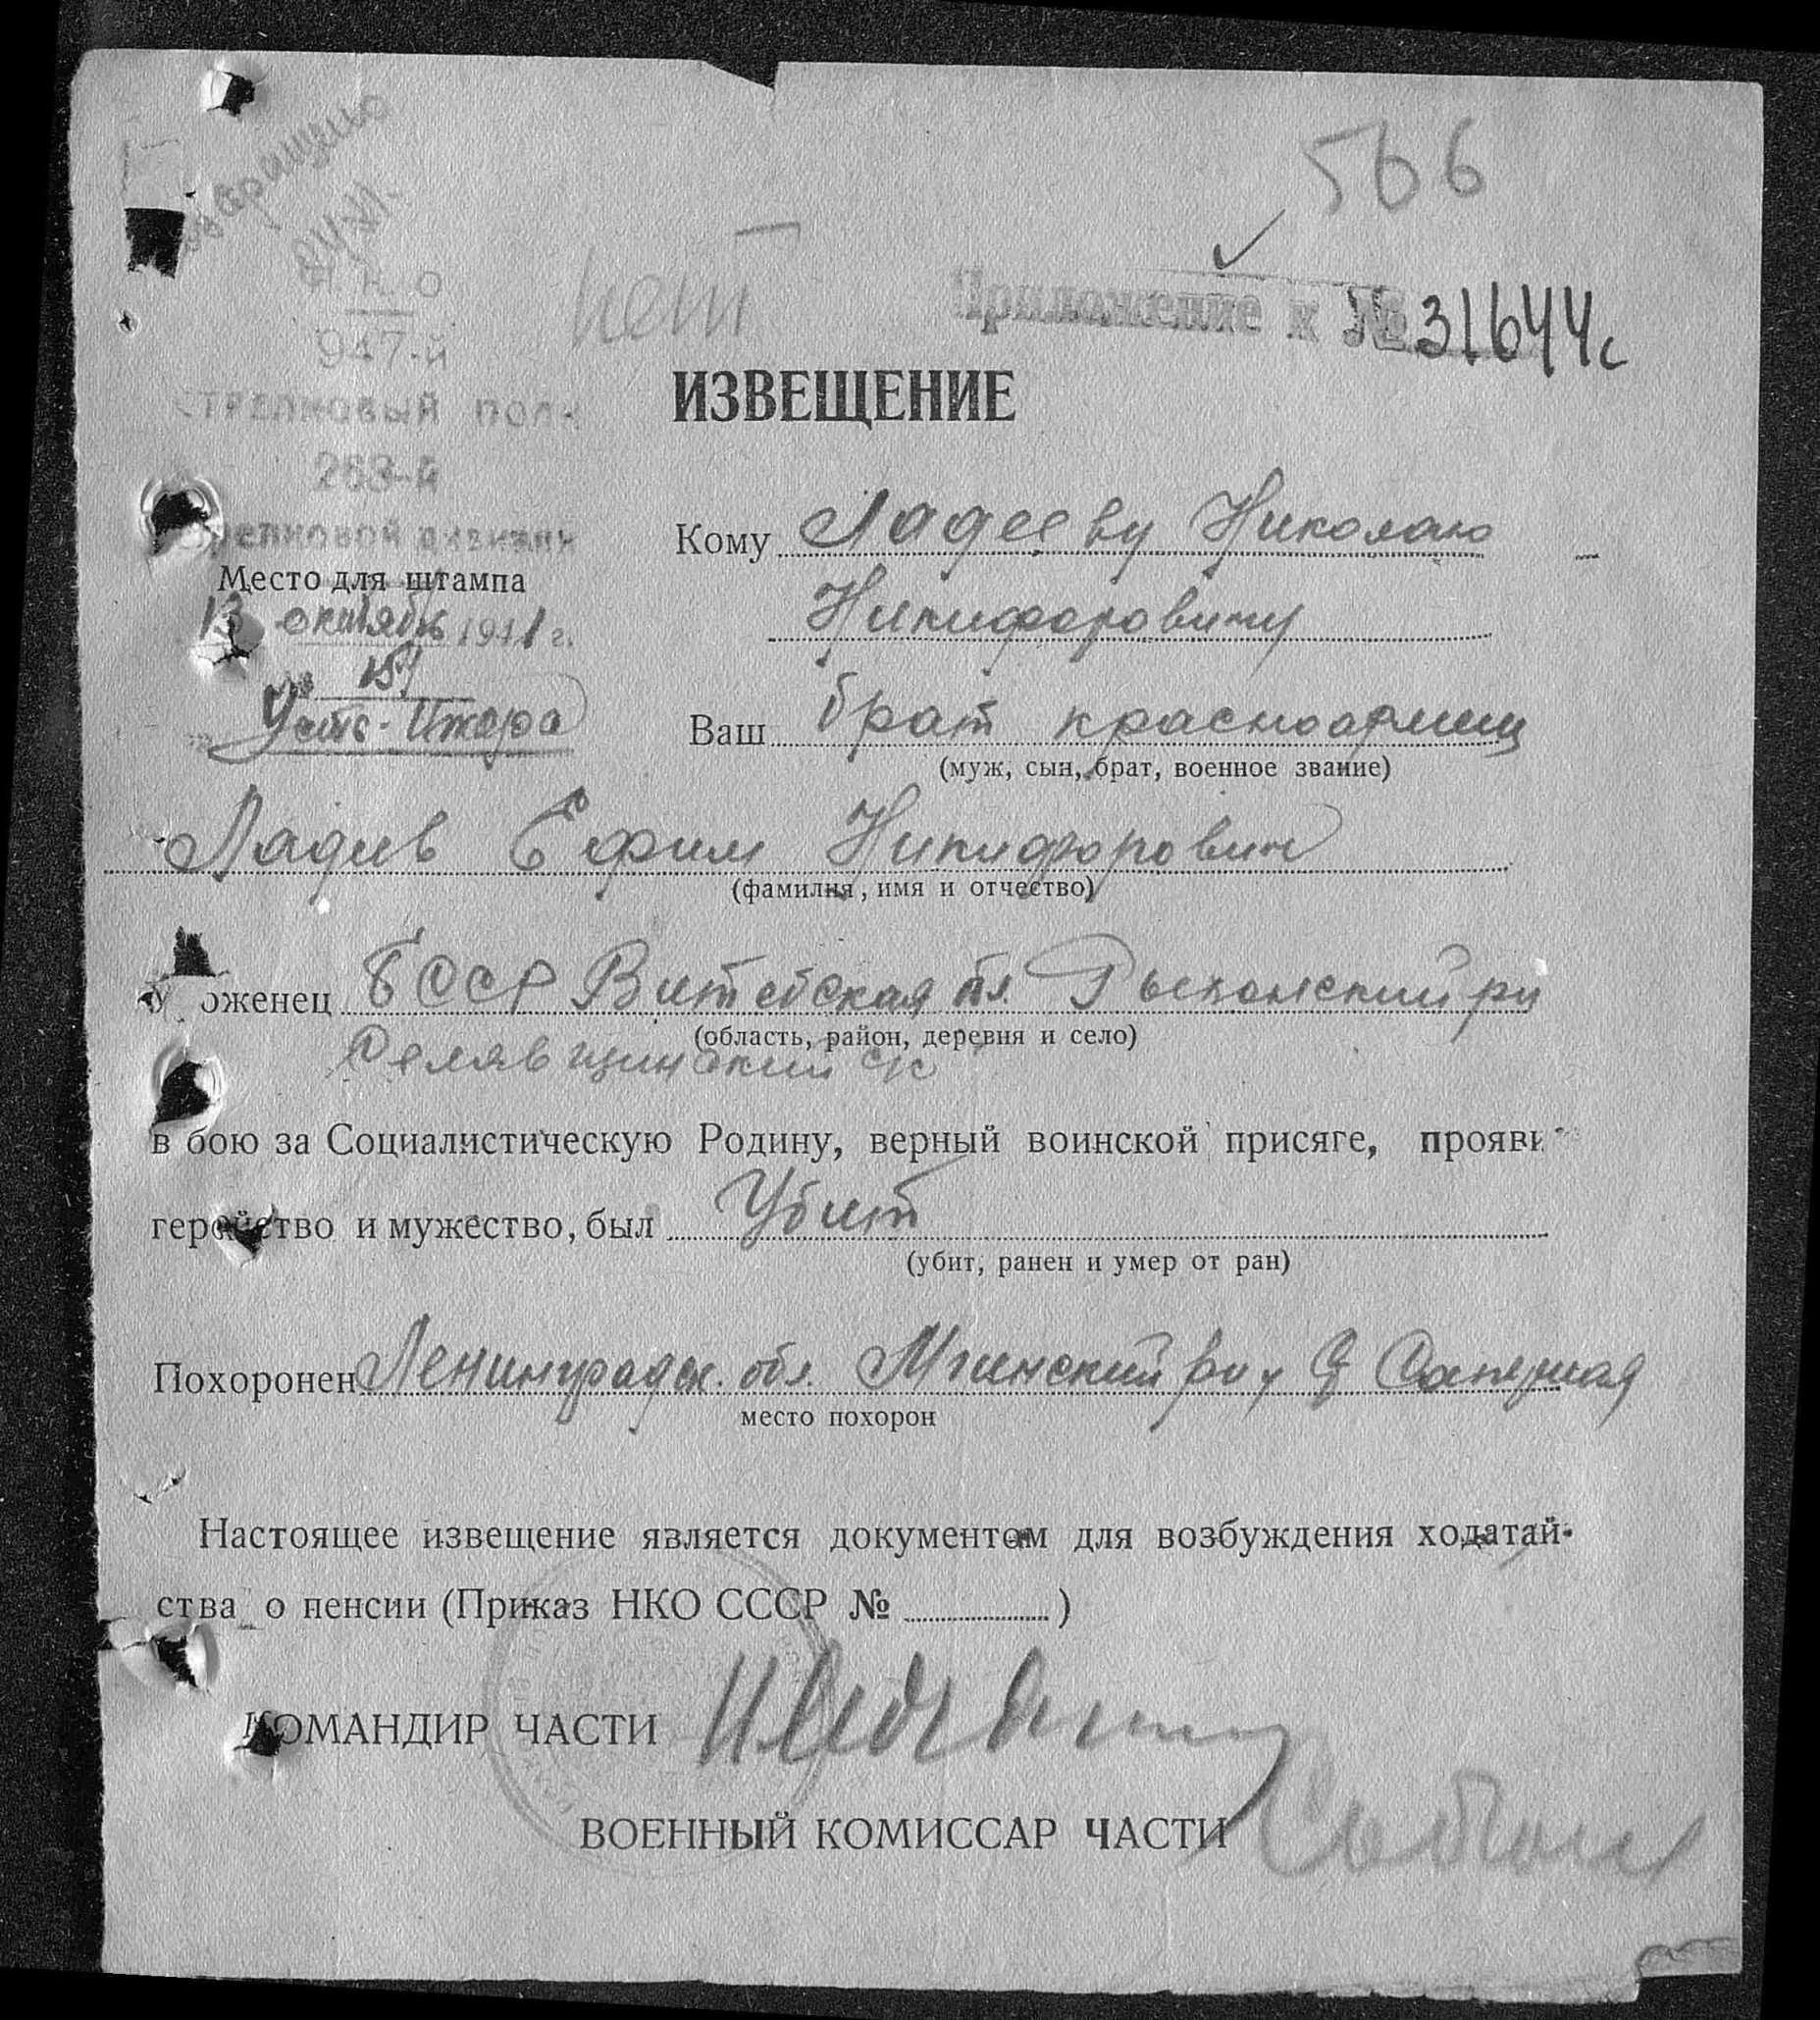 566
нет
Приложение к № 31644с
Н. К. О
947-й
СТРЕЛКОВЫЙ ПОЛК
268-й
стрелковой дивизии
Место для штампа
13 октября 1941 г.
Усть-Ижора
ИЗВЕЩЕНИЕ
Кому Ладееву Николаю
Никифоровичу
Ваш брат красноармеец
(муж, сын, брат, военное звание)
Ладеев Ефим Никифорович
(фамилия, имя и отчество)
Уроженец БССР Витебская обл.
(область, район, деревня и село)
в бою за Социалистическую Родину, верный воинской присяге, прояви
геройство и мужество, был Убит
(убит, ранен и умер от ран)
Похоронен Ленинградск. обл. Мгинский р-н Саперная
место похорон
Настоящее извещение является документом для возбуждения ходатай-
ства о пенсии (Приказ НКО СССР № )
КОМАНДИР ЧАСТИ
ВОЕННЫЙ КОМИССАР ЧАСТИ